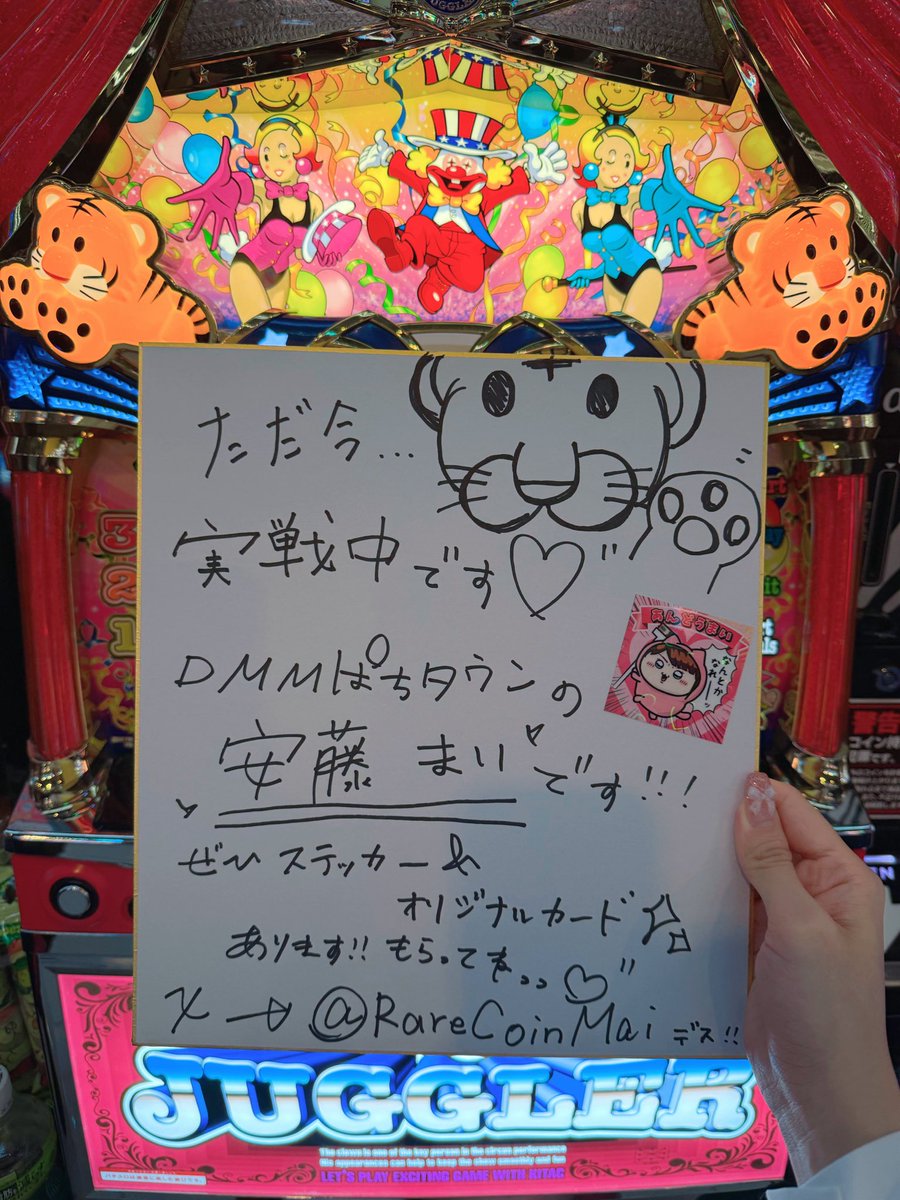 JUGGLER
ただ今...
実戦中です♡"
DMMぱちタウンの
あんどうまい
なんとか
なれーッ
安藤 まいです!!!
ぜひステッカー&
オリジナルカード
あります!! もらってね
X → @RareCoinMai デス!!
警告
コイン
JUGGLER
The clown is one of the key person in the circus performance
His appearances can help to keep the show smoothly and fun
LET'S PLAY EXCITING GAME WITH KITAC